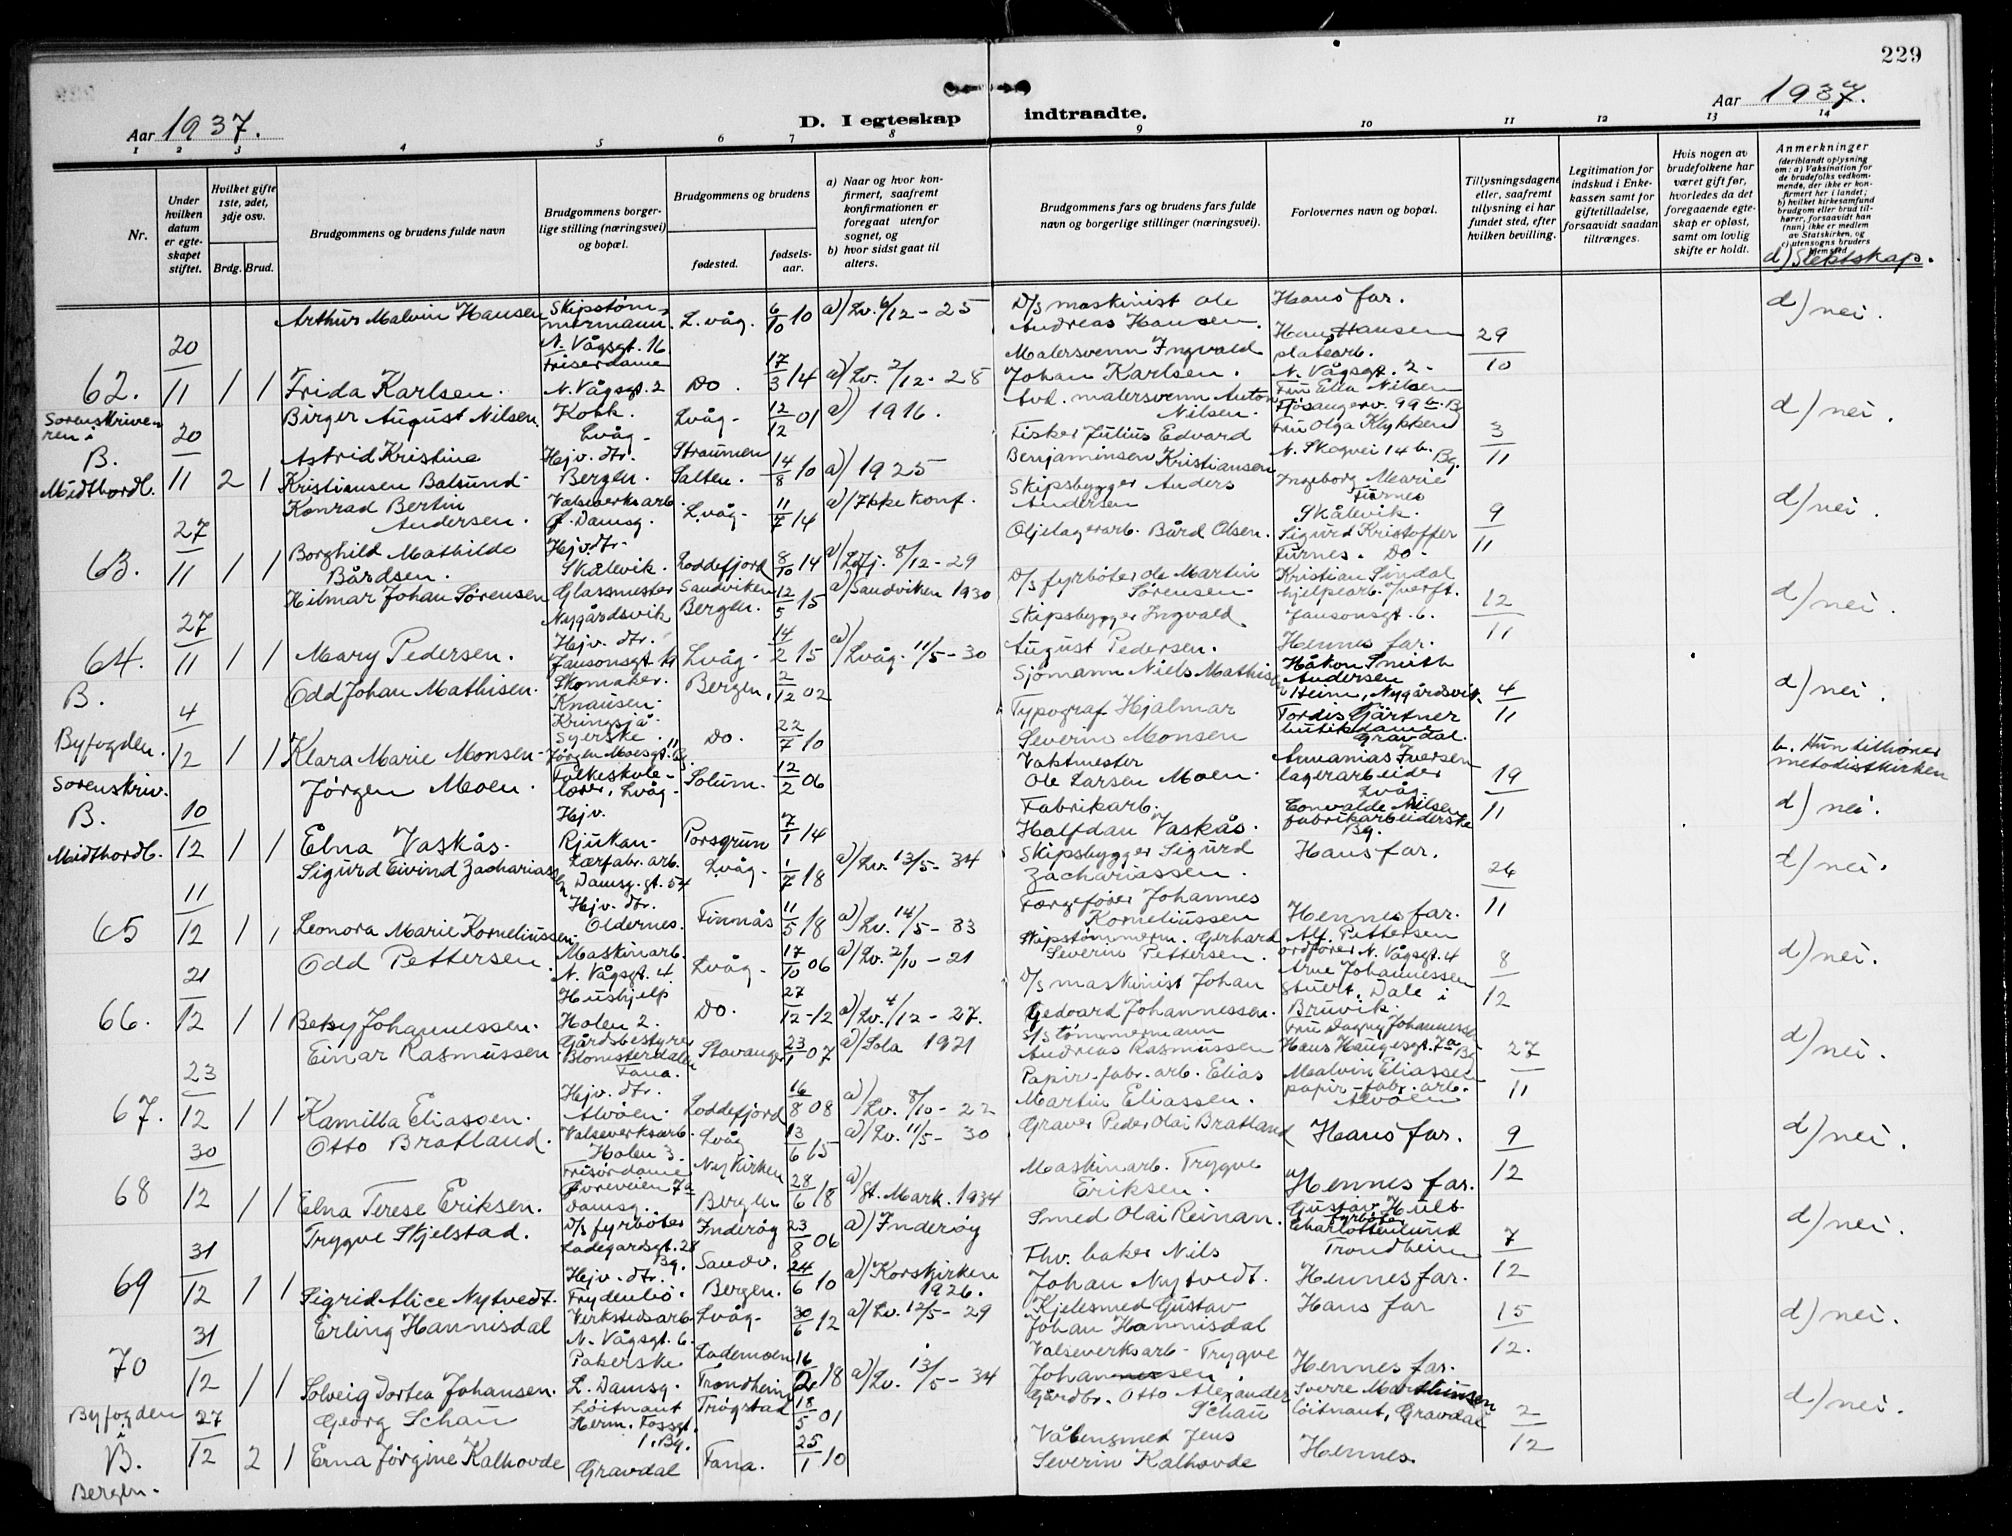 229
Aar 1937.
D. I egteskap
indtraadte.
Aar 1937.
1 2 3 4 5 6 7 8 9 10 11 12 13 14
Nr.
Under hvilken datum er egteskapet stiftet.
Hvilket gifte 1ste, 2det, 3dje osv.
Brdg. Brud.
Brudgommens og brudens fulde navn
Brudgommens borgerlige stilling (næringsvei) og bopæl.
Brudgommens og brudens
fødested.
fødselsaar.
a) Naar og hvor konfirmert, saafremt konfirmationen er foregaat utenfor sognet, og
b) hvor sidst gaat til alters.
Brudgommens fars og brudens fars fulde navn og borgerlige stillinger (næringsvei).
Forlovernes navn og bopæl.
Tillysningsdagene eller, saafremt tillysning ei har fundet sted, efter hvilken bevilling.
Legitimation for indskud i Enkekassen samt for giftetilladelse, forsaavidt saadan tiltrænges.
Hvis nogen av brudefolkene har været gift før, hvorledes da det foregaaende egteskap er opløst, samt om lovlig skifte er holdt.
Anmerkninger (deriblandt oplysning om: a) Vaksination for de brudefolks vedkommende, der ikke er konfirmert her i landet; b) hvilket kirkesamfund brudgom eller brud tilhører, forsaavidt han (hun) ikke er medlem av Statskirken, og c) utensogns bruders hjemsted
d) Slektskap.
62. 20/11 1 1
Arthur Malvin Hansen Skipstømmermann. N. Vågsgt. 16 L.våg. 6/10 10 a) Lv. 6/12 - 25 D/s maskinist Ole Andreas Hansen. Hans far. 29/10 d) nei.
Frida Karlsen. Friserdame N. Vågsgt. 2 Do. 17/3 14 a) Lv. 2/12 - 28 Malersvenn Ingvald Johan Karlsen. Hans Hansen platearb. N. Vågsgt. 2 -
Sorenskriveren i B. Midthordl. 20/11 2 1
Birger August Nilsen. Kokk. Lvåg - Lvåg - 12/12 01 a) 1916. Avd. malersvenn Anton Nilsen. Fru Ella Nilsen Fjøsangerv. 99 b. B 3/11 d) nei.
Astrid Kristine Kristiansen Balsund - Hejv. dtr. Bergen. Straumen Salten. 14/8 10 a) 1925 Fisker Julius Edvard Benjaminsen Kristiansen Fru Olga Klykken N. Skogvei 14 b. Bg.
63. 27/11 1 1
Konrad Bertin Andersen. Valseverksarb. Damsg. L.våg - 11/7 14 a) Ikke konf. Skipsbygger Anders Andersen Ingeborg Marie Furnes Skålevik. 9/11 d) nei.
Borghild Mathilde Bårdsen. Hejv. dtr. Skålevik. Loddefjord 8/10 14 a) Ldfj. 8/12 - 29 Oljelagerarb. Bård Olsen. Sigurd Kristoffer Furnes. Do.
64. 27/11 1 1
Hilmar Johan Sørensen Glassmester Nygårdsvik Sandviken Bergen. 12/5 15 a) Sandviken 1930 D/s fyrbøter Ole Martin Sørensen - Kristian Sindal hjelpearb. v/verft. Jansonsgt. 6. 12/11 d) nei.
Mary Pedersen. Hejv. dtr. Jansonsgt. 19 Lvåg - 14/2 15 a) Lvåg. 11/5 - 30 Skipsbygger Ingvald August Pedersen. Hennes far.
B. Byfogden. 4/12 1 1
Odd Johan Mathisen. Skomaker. Knausen - Kringsjå - Bergen. 2/12 02 Sjømann Niels Mathisen Håkon Smith Andersen Heim, Nygårdsvik 4/11 d) nei.
Klara Marie Monsen - Syerske. Jørgen Moesgt. 11 Bg. Do. 22/7 10 Typograf Hjalmar Severin Monsen Tordis Gärtner butikdame Gravdal.
Sorenskriv. B. Midthordl. 10/12 1 1
Jørgen Moen. Folkeskolelærer, Lvåg - Solum. 12/2 06 Vaktmester Ole Larsen Moen. Annanias Iversen lagerarbeider Lvåg 19/11 b. Hun tilhører metodistkirken d) nei.
Elna Vaskås. Hjv. Rjukan - Porsgrun 7/1 14 Fabrikarb. Halfdan Vaskås. Nilsen fabrikarbeiderske Bg.
65 11/12 1 1
Sigurd Eivind Zachariassen Lærfabr. arb. Damsg. gt. 54 Lvåg - 1/7 18 a) Lv. 13/5 - 34 Skipsbygger Sigurd Zachariassen. Hans far. 26/11 d) nei.
Leonora Marie Korneliussen. Hejv. dtr. Oldernes. Finnås 11/5 18 a) Lv. 14/5 - 33 Færgefører Johannes Korneliussen Hennes far.
66. 21/12 1 1
Odd Pettersen. Maskinarb. N. Vågsgt. 4 Lvåg - 17/10 06 a) Lv. 2/10 - 21 Skipstømmerm. Gerhard Severin Pettersen. Alf. Pettersen ordfører N. Vågsgt. 4 8/12 d) nei.
Betsy Johannessen. Hushjelp Holen 2. Do. 27/12 - 12 a) Lv. 4/12 - 27. D/s maskinist Johan Gedvard Johannessen. Arne Johannessen stuert. Dale i Bruvik.
67. 23/12 1 1
Einar Rasmussen Gårdsbestyrer Blomsterdalen Fana. Stavanger 23/1 07 a) Sola 1921 S/s tømmermann Andreas Rasmussen Fru Dagny Johannessen Hans Haugesgt. 7a Bg 27/11 d) nei.
Kamilla Eliassen. Hejv. dtr. Alvøen. Loddefjord 16/8 08 a) Lv. 8/10 - 22 Papir-fabr. arb. Elias Martin Eliassen. Malvin Eliassen papir-fabr. arb. Alvøen
68 30/12 1 1
Otto Bratland. Valseverksarb. Holen 3. Lvåg 13/6 15 a) Lv. 11/5 - 30 Graver Peder Olai Bratland Hans far. 9/12 d) nei.
Elna Terese Eriksen. Frisørdame Foreveien 7a Damsg. Nykirken Bergen 28/6 18 a) St. Mark. 1934 Maskinarb. Trygve Eriksen. Hennes far.
69 31/12 1 1
Trygve Skjelstad. D/s fyrbøter Ladegårdsgt. 28 Bg. Inderøy 23/8 06 a) Inderøy Smed Olai Reinan. Gustav Hult fyrbøter Charlottenlund Trondheim 7/12 d) nei.
Sigrid Alice Nytvedt. Hejv. dtr. Frydenbø. Sandv. Bergen. 24/6 10 a) Korskirken 1926. Fhv. baker Nils Johan Nytvedt. Hennes far.
70 31/12 1 1
Erling Hannisdal Verkstedsarb. N. Vågsgt. 6. Lvåg - 30/6 12 a) Lv. 12/5 - 29 Kjelesmed Gustav Johan Hannisdal Hans far 15/12. d) nei.
Solveig Dortea Johansen. Pakerske L. Damsg. Lademoen Trondheim 16/2 18 a) Lv. 13/5 - 34 Valseverksarb - Trygve Johansen. Hennes far.
Byfogden i B. Bergen. 27/12 2 1
Georg Schau Løitnant Herm. Fossgt. 1. Bg. Trøgstad 18/5 01 Gårdbr. Otto Alexander Schau Sverre Marthinsen løitnant, Gravdal 2/12 d) nei.
Erna Jørgine Kalhovde Gravdal Fana. 25/1 10 Våbensmed Jens Severin Kalhovde Hennes.